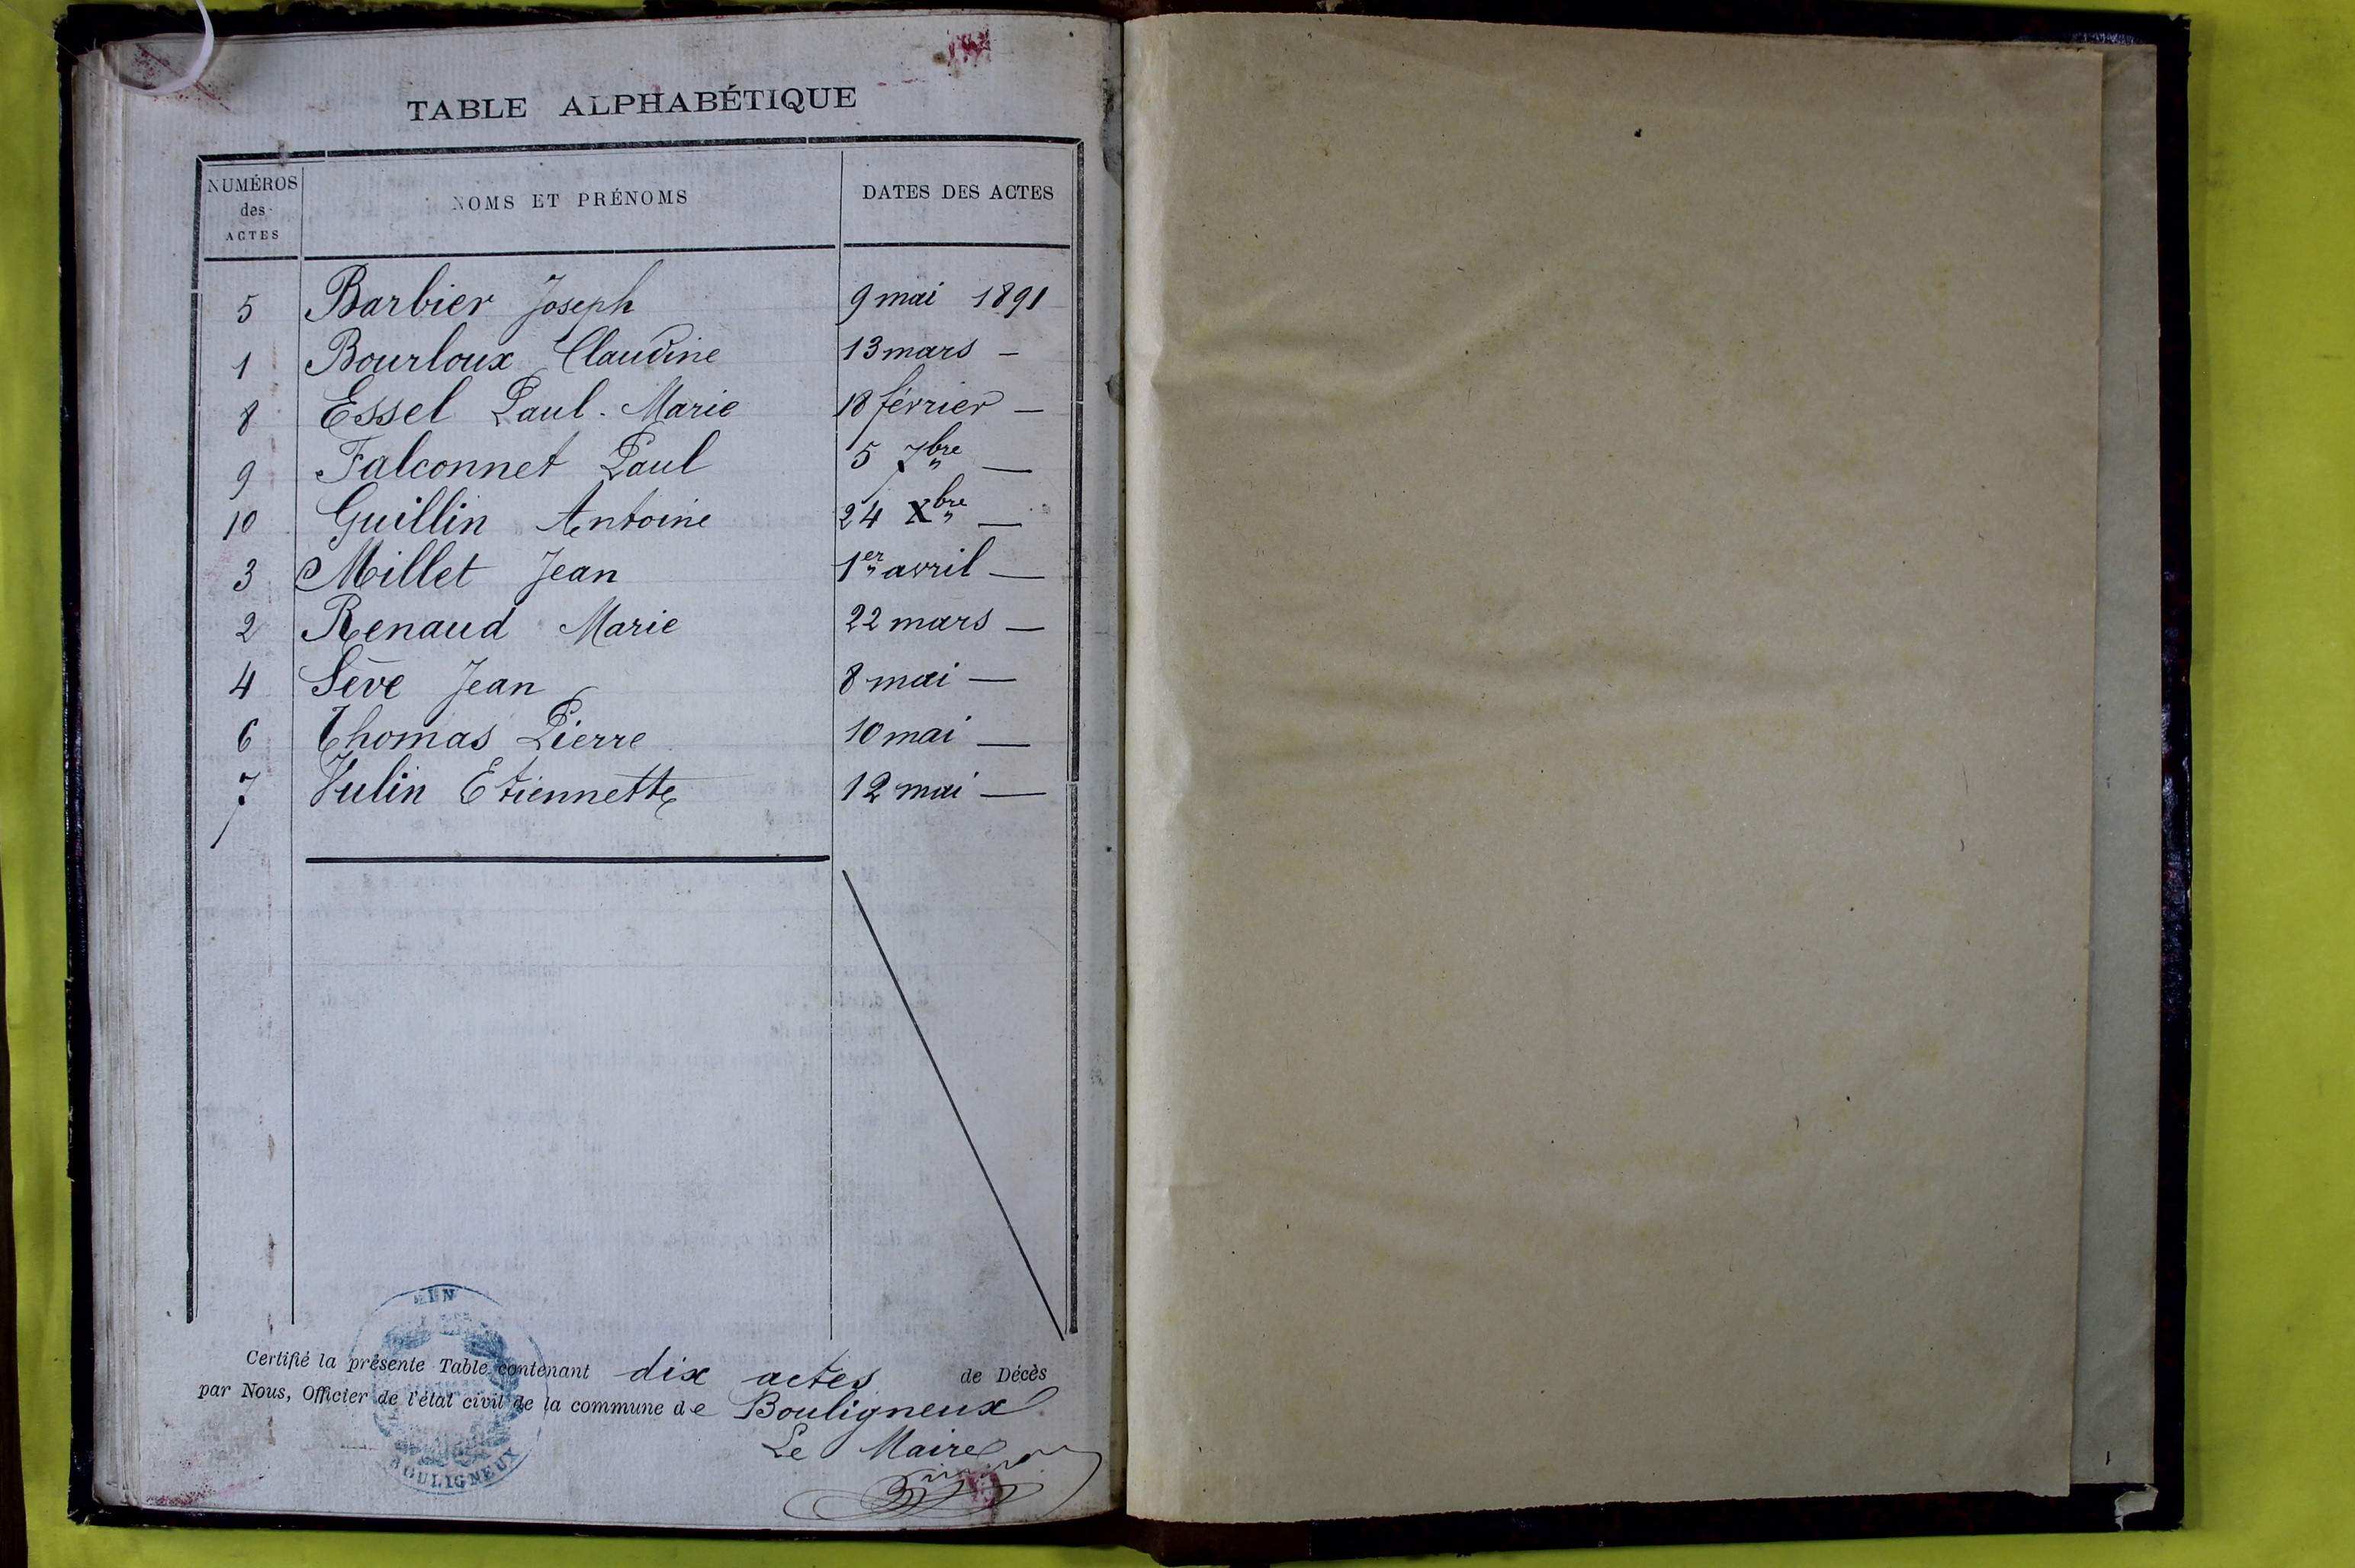 TABLE ALPHABÉTIQUE
NUMÉROS
des
ACTES
NOMS ET PRÉNOMS
DATES DES ACTES
5 Barbier Joseph 9 mai 1891
1 Bourloux Claudine 13 mars —
8 Essel Paul-Marie 18 février —
9 Falconnet Paul 5 7bre —
10 Guillin Antoine 24 Xbre —
3 Millet Jean 1er avril —
2 Renaud Marie 22 mars —
4 Sève Jean 8 mai —
6 Thomas Pierre 10 mai —
7 Vulin Etiennette 12 mai —
Certifié la présente Table contenant dix actes de Décès
par Nous, Officier de l'état civil de la commune de Bouligneux
Le Maire
AIN
BOULIGNEUX